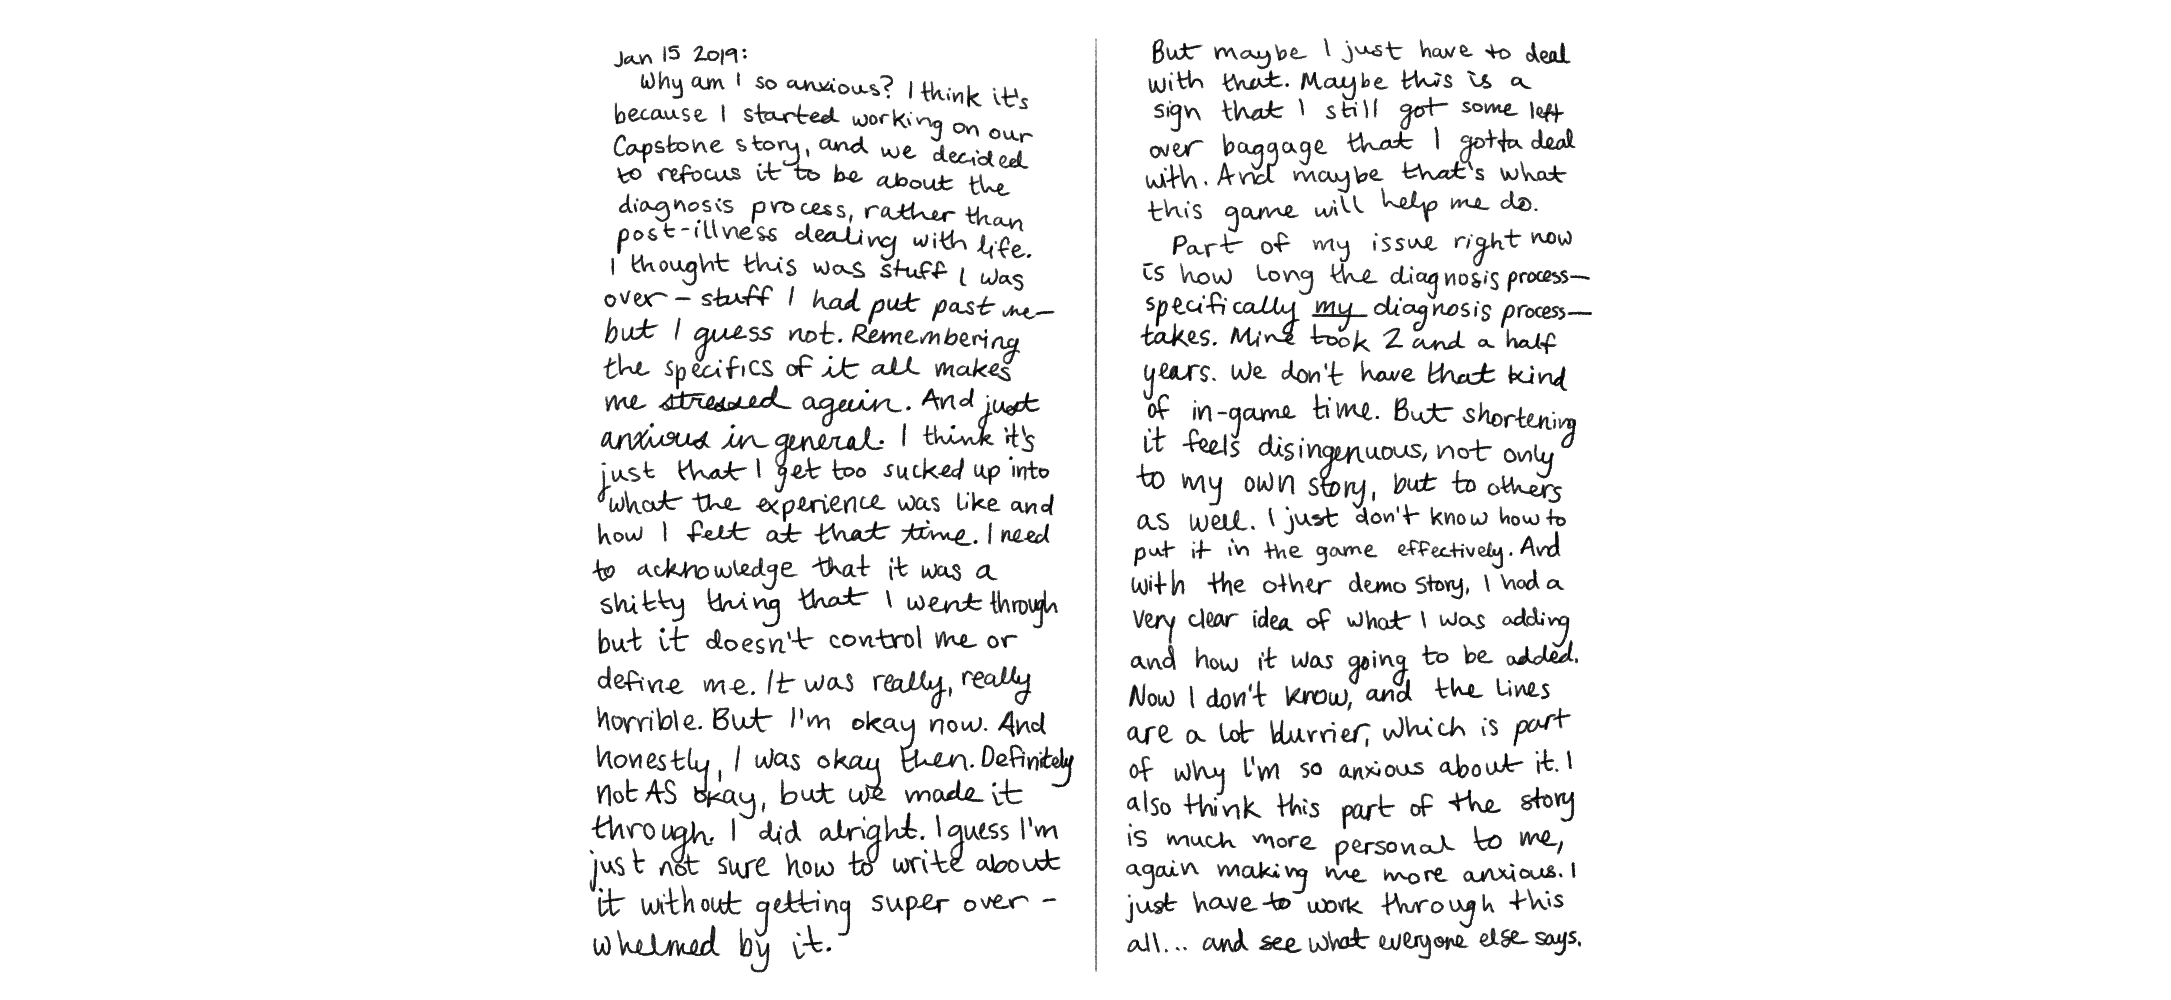 Jan 15 2019:
Why am I so anxious? I think it's
because I started working on our
Capstone story, and we decided
to refocus it to be about the
diagnosis process, rather than
post-illness dealing with life.
I thought this was stuff I was
over - stuff I had put past me-
but I guess not. Remembering
the specifics of it all makes
me stressed again. And just
anxious in general. I think it's
just that I get too sucked up into
what the experience was like and
how I felt at that time. I need
to acknowledge that it was a
shitty thing that I went through
but it doesn't control me or
define me. It was really, really
horrible. But I'm okay now. And
honestly, I was okay then. Definitely
not AS okay, but we made it
through. I did alright. I guess I'm
just not sure how to write about
it without getting super over-
whelmed by it.
But maybe I just have to deal
with that. Maybe this is a
sign that I still got some left
over baggage that I gotta deal
with. And maybe that's what
this game will help me do.
Part of my issue right now
is how long the diagnosis process—
specifically my diagnosis process—
takes. Mine took 2 and a half
years. We don't have that kind
of in-game time. But shortening
it feels disingenuous, not only
to my own story, but to others
as well. I just don't know how to
put it in the game effectively. And
with the other demo story, I had a
very clear idea of what I was adding
and how it was going to be added.
Now I don't know, and the lines
are a lot blurrier, which is part
of why I'm so anxious about it. I
also think this part of the story
is much more personal to me,
again making me more anxious. I
just have to work through this
all... and see what everyone else says.